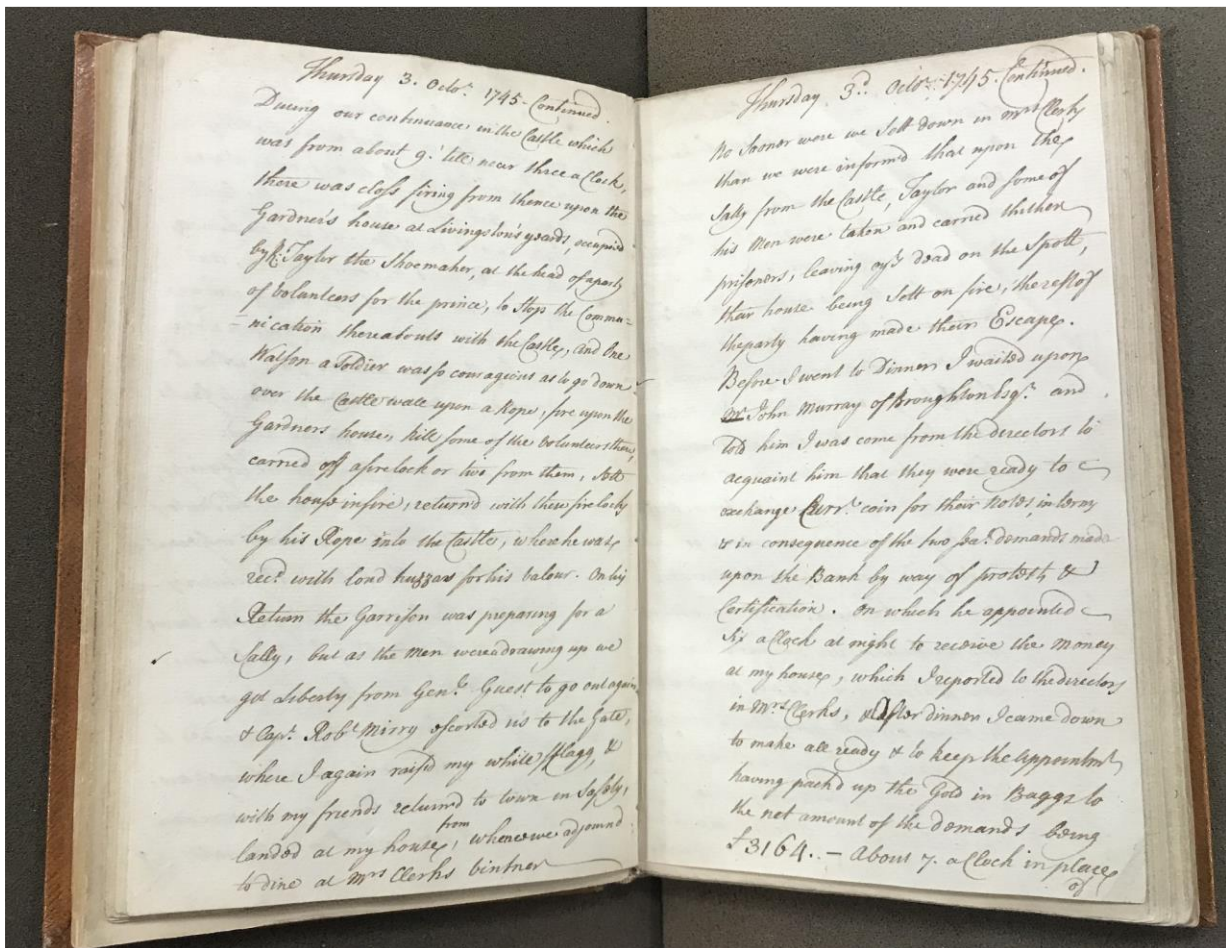 Thursday 3. Octor. 1745 - Continued.
During our continuance in the Castle which
was from about 9. till near three a Clock,
there was closs firing from thence upon the
Gardner's house at Livingston's yeards, occupied
by Taylor the Shoemaker, at the head of a party
of Volunteers for the prince, to Stop the Commu-
-nication thereabouts with the Castle, and One
Watson a Soldier was so couragious as to go down
over the Castle wall upon a Rope, fire upon the
Gardners house, kill some of the Volunteers there,
carried off a firelock or two from them, Sett
the house in fire, return'd with these firelocks
by his Rope into the Castle, where he was
recd. with loud huzzas for his Valour. On his
Return the Garrison was preparing for a
Sally, but as the Men were a drawing up we
got Liberty from Genl. Guest to go out again
& Capt. Robt. Mirry escorted us to the Gate,
where I again raised my white fflagg, &
with my friends returnd to town in Safety,
landed at my house, from whence we adjournd
to dine at Mrs Clerks vintner
Thursday 3d. Octor. 1745. Continued.
No Sooner were we Sett down in Mrs Clerks
than we were inform'd that upon the
Sally from the Castle, Taylor and some of
his Men were taken and carried thither
prisoners, leaving one dead on the Spott,
their house being Sett on fire, the rest of
the party having made their Escape.
Before I went to Dinner I waited upon
Mr John Murray of Broughton Esqr. and
told him I was come from the directors to
acquaint him that they were ready to
exchange Currt. coin for their Notes, in terms
& in consequence of the two sa: demands made
upon the Bank by way of protest &
Certification. On which he appointed
Six a Clock at night to receive the money
at my house, which I reported to the directors
in Mrs. Clerks, & After dinner I came down
to make all ready & to keep the appointmt,
having pack'd up the Gold in Baggs to
the net amount of the demands being
£3164.. - About 7. a Clock in place
of